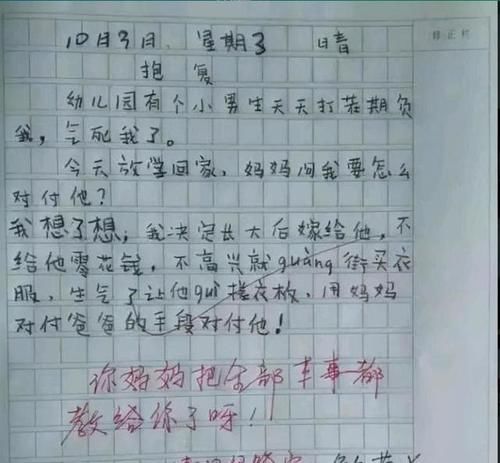 10月3日. 星期3 日晴
抱 复
幼儿园有个小男生天天打茬期负
我，气死我了。
今天放学回家，妈妈问我要怎么
对付他？
我想了想，我决定长大后嫁给他，不
给他零花钱，不高兴就guàng街买衣
服，生气了让他guì搓衣板，用妈妈
对付爸爸的手段对付他！
你妈妈把全部本事都
教给你了呀！
修正栏